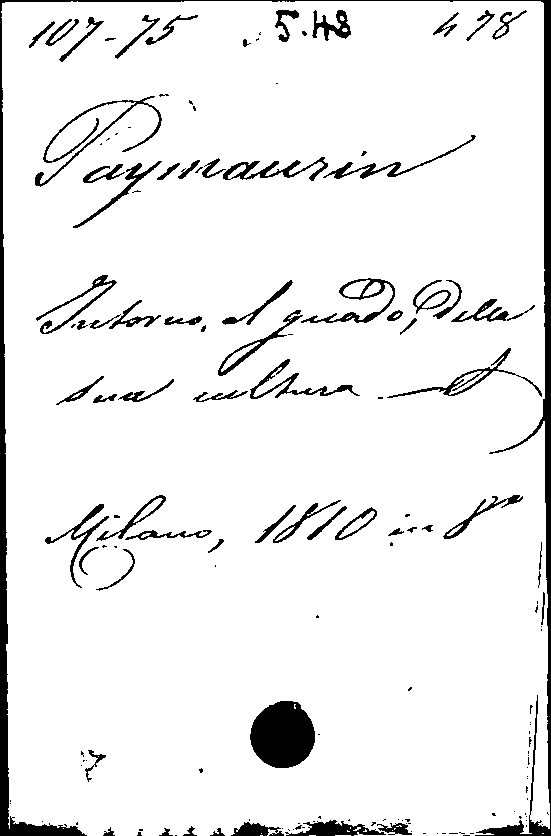 107-75 5.43 478
Paymaurin
Intorno, al guado, della
sua cultura
Milano, 1810 in 8º